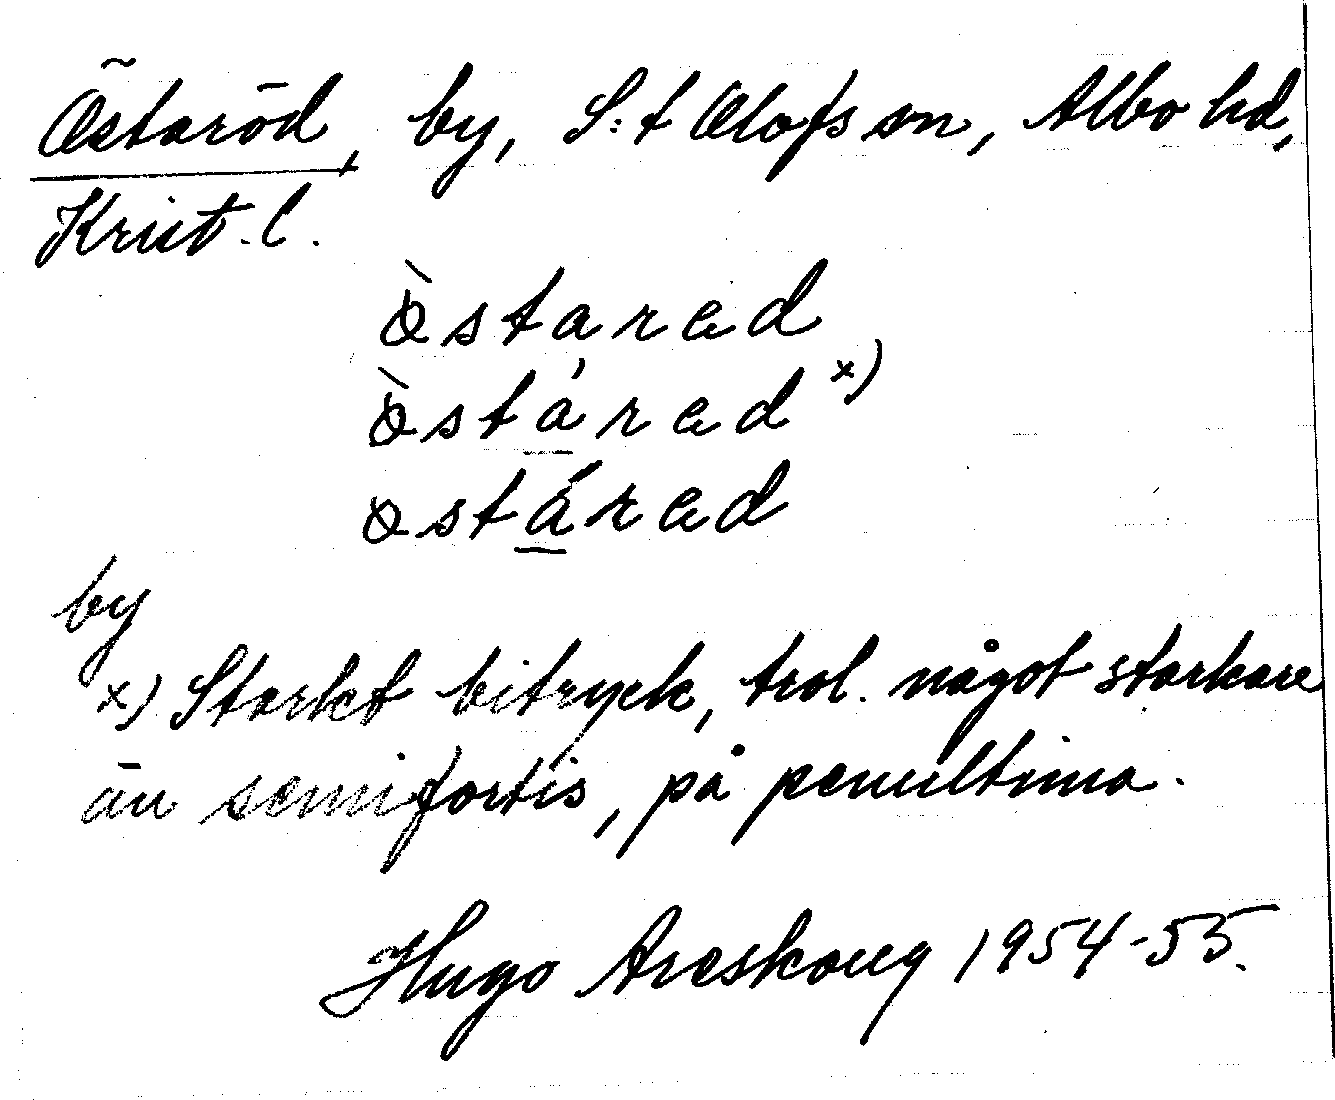 Östaröd, by, S:t Olofs sn, Albo hd,
Krist.l.
ò̀starad
ò̀stáradˣ⁾
østárad
by
x) Starkt bitryck, trol. något starkare
än semifortis, på penultima.
Hugo Areskoug 1954-55.